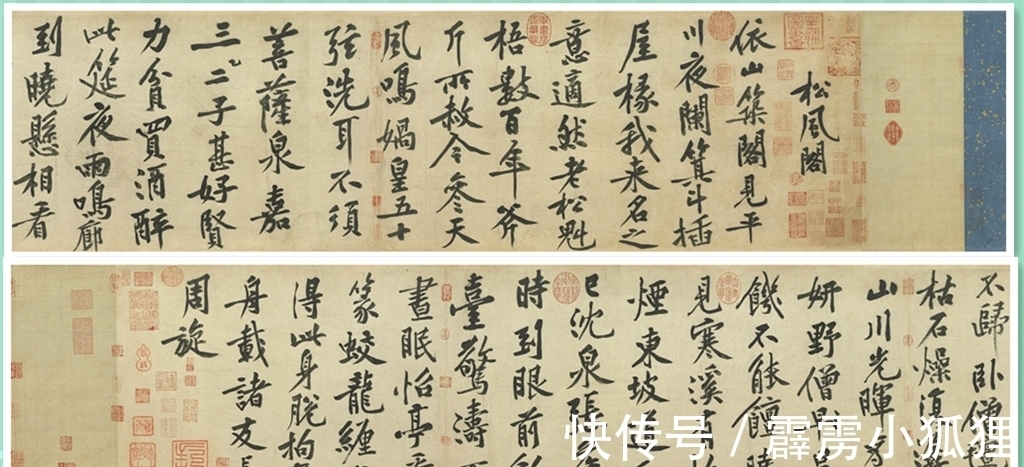 松風閣
依山築閣見平
川夜闌箕斗插
屋椽我来名之
意適然老松魁
梧數百年斧
斤所赦今參天
風鳴媧皇五十
弦洗耳不須
菩薩泉嘉
三二子甚好賢
力貧買酒醉
此筵夜雨鳴廊
到曉懸相看
不歸卧僧
枯石燥復
山川光暉
妍野僧旱
饑不能饘曉
見寒溪
煙東坡道
已沈泉張
時到眼前
臺驚濤
晝眠怡亭
篆蛟龍纏
得此身脫拘
舟載諸友
周旋
快传号 / 霹雳小狐狸